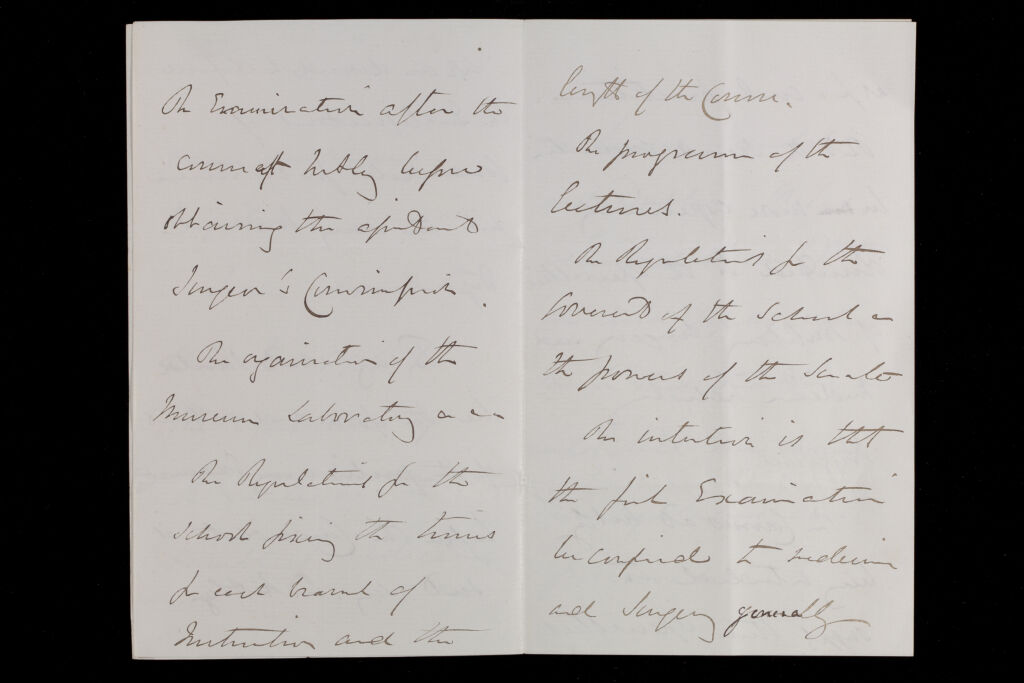 The Examination after the
course at Netley before
obtaining the Assistant
Surgeon's Commission.
The organisation of the
Museum Laboratory
The Regulations for the
School fixing the times
for each branch of
Instruction and the
length of the Course.
The programme of the
lectures.
The Regulations for the
Government of the School &
the powers of the Senate
The intention is that
the first Examination
be confined to medicine
and Surgery generally